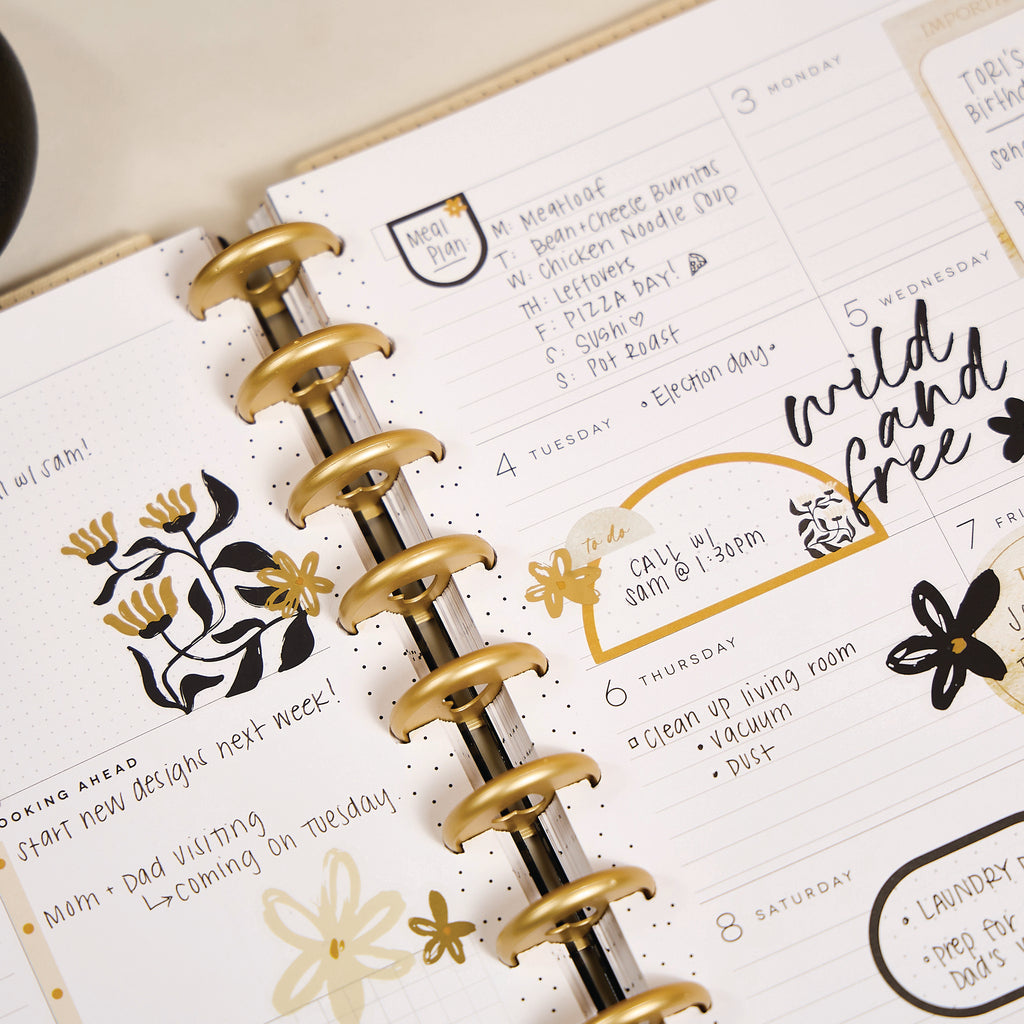 w/ sam!
start new designs next week!
Mom + Dad visiting
↳coming on Tuesday
Meal
Plan:
M: Meatloaf
T: Bean+Cheese Burritos
W: Chicken Noodle Soup
TH: Leftovers
F: PIZZA DAY!
S: Sushi♡
S: Pot Roast
3 MONDAY
TORI'S
4 TUESDAY
• Election day•
5 WEDNESDAY
wild
and
free
to do
CALL w/
sam @ 1:30pm
6 THURSDAY
□ Clean up living room
• Vacuum
• Dust
7
8 SATURDAY
• LAUNDRY
• prep for
Dad's
AHEAD